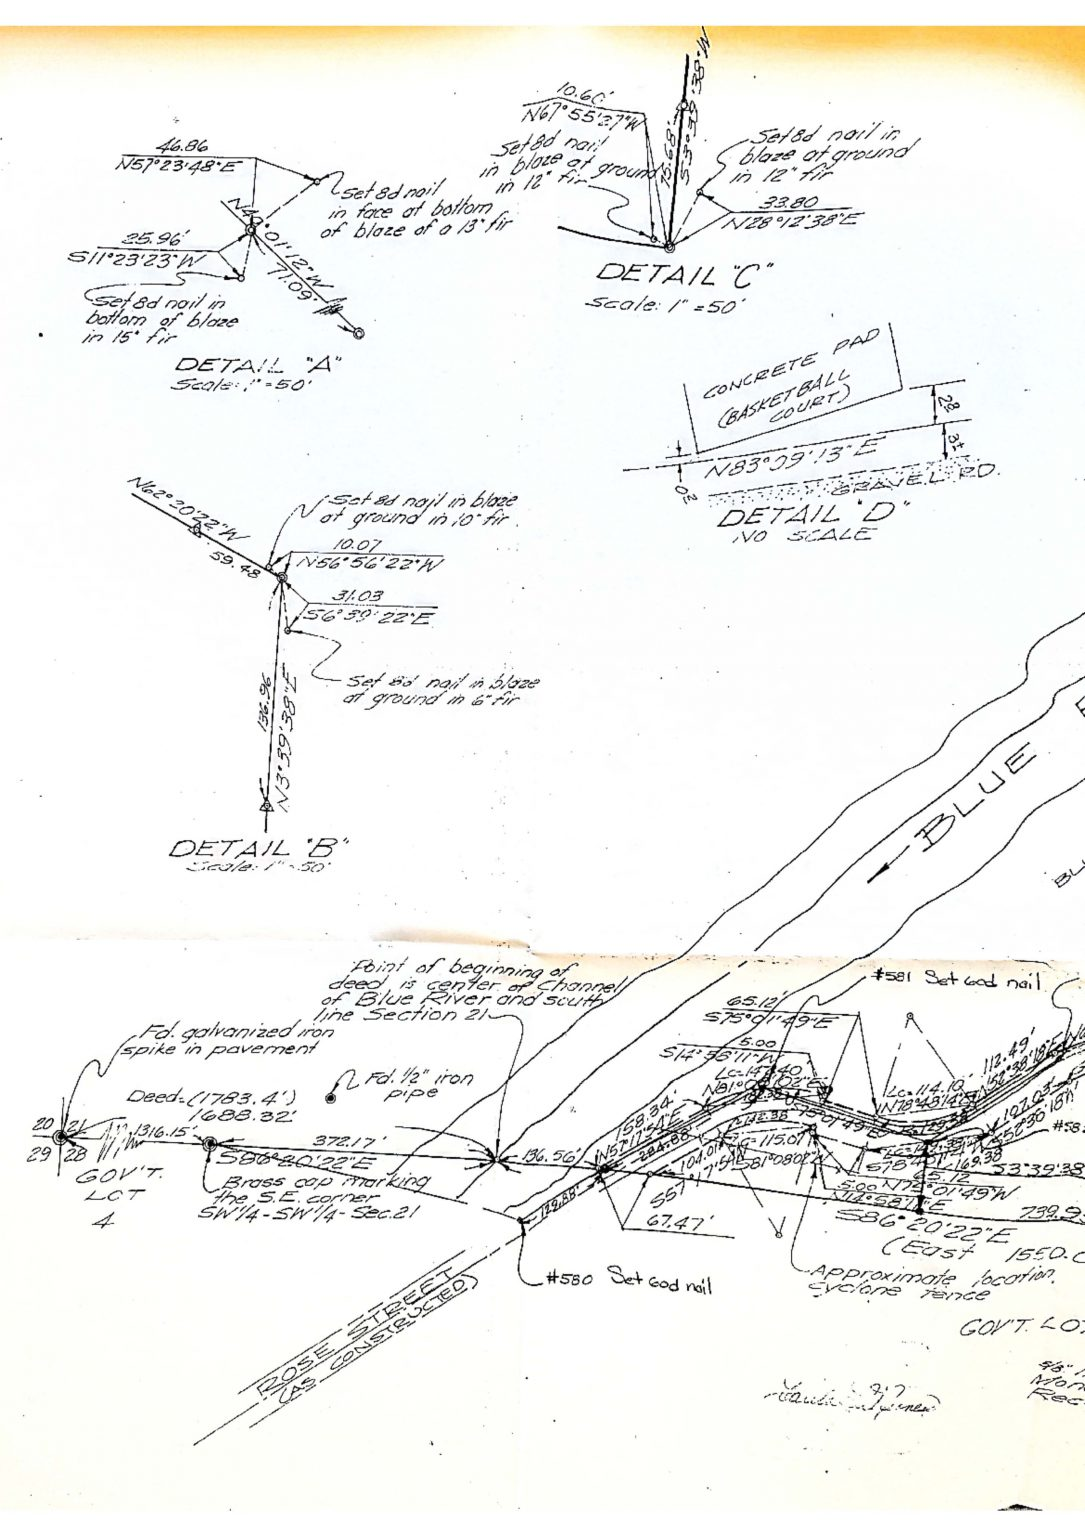 46.86
N57°23'48"E
Set 8d nail
in face at bottom
of blaze of a 13" fir
N49°01'12"W
71.09'
25.96'
S11°23'23"W
Set 8d nail in
bottom of blaze
in 15" fir
DETAIL "A"
Scale: 1" = 50'
10.60'
N67°55'27"W
Set 8d nail
in blaze at ground
in 12" fir
Set 8d nail in
blaze at ground
in 12" fir
33.80
N28°12'38"E
DETAIL "C"
Scale: 1" = 50'
CONCRETE PAD
(BASKETBALL
COURT)
N83°09'13"E
GRAVEL RD.
DETAIL "D"
NO SCALE
N62°20'22"W
59.48
Set 8d nail in blaze
at ground in 10" fir
10.07
N56°56'22"W
31.03
S6°39'22"E
Set 8d nail in blaze
at ground in 6" fir
136.96
N3°39'38"E
DETAIL "B"
Scale: 1" = 50'
BLUE
Point of beginning of
deed is center of Channel
of Blue River and south
line Section 21
#581 Set 60d nail
Fd. galvanized iron
spike in pavement
Fd. 1/2" iron
pipe
Deed=(1783.4')
1688.32'
20 21
29 28
1316.15'
372.17'
S86°20'22"E
136.56'
GOV'T.
LOT
4
Brass cap marking
the S.E. corner
SW1/4-SW1/4-Sec.21
65.12'
S75°01'49"E
5.00
S14°58'11"W
Lc=147.40
58.34'
112.49'
Lc=114.10'
N78°43'14"E
Lc=115.07
S81°08'02"W
107.03
169.38
65.12
N75°01'49"W
5.00
N14°58'11"E
S3°39'38
129.88'
67.47'
S86°20'22"E
739.9
(East 1550.0
#580 Set 60d nail
Approximate location,
cyclone fence
ROSE STREET
(AS CONSTRUCTED)
GOV'T. LOT